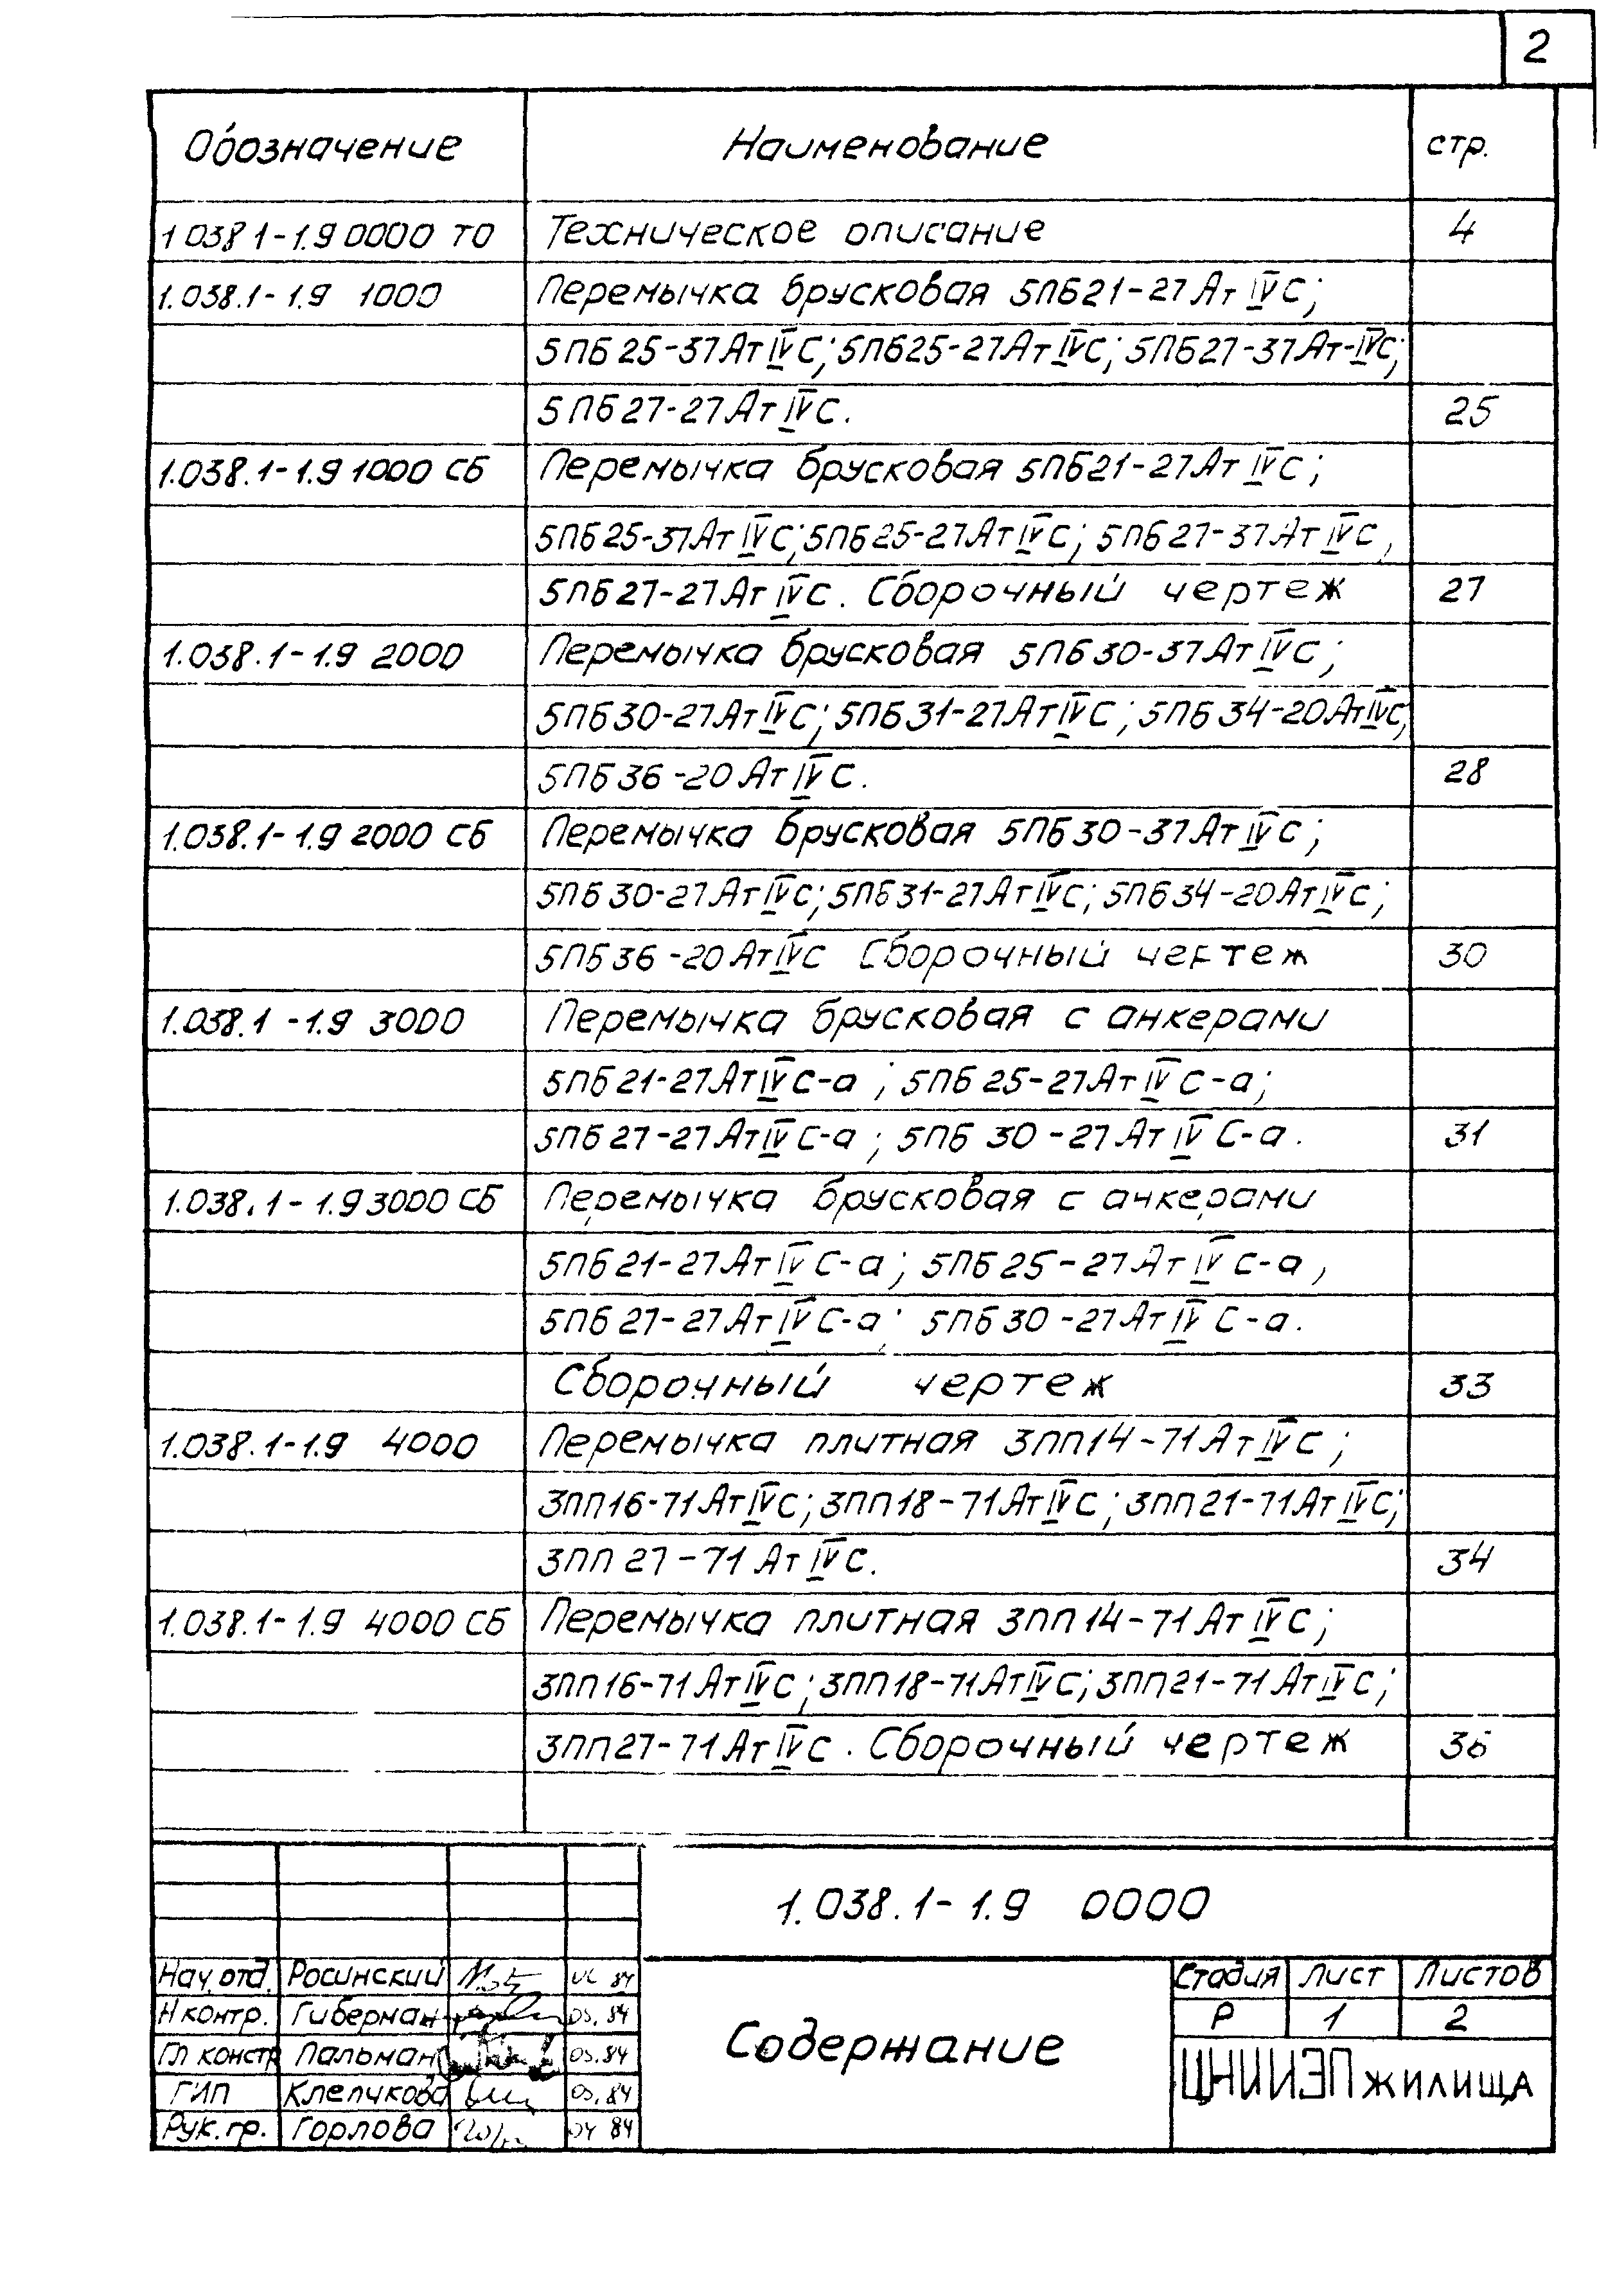 2
Обозначение Наименование стр.
1 038 1-1.9 0000 ТО Техническое описание 4
1.038.1-1.9 1000 Перемычка брусковая 5ПБ21-27АтIVС;
5ПБ25-37АтIVС; 5ПБ25-27АтIVС; 5ПБ27-37Ат-IVС;
5ПБ27-27АтIVС. 25
1.038.1-1.9 1000 СБ Перемычка брусковая 5ПБ21-27АтIVС;
5ПБ25-37АтIVС; 5ПБ25-27АтIVС; 5ПБ27-37АтIVС,
5ПБ27-27АтIVС. Сборочный чертеж 27
1.038.1-1.9 2000 Перемычка брусковая 5ПБ30-37АтIVС;
5ПБ30-27АтIVС; 5ПБ31-27АтIVС; 5ПБ34-20АтIVС;
5ПБ36-20АтIVС. 28
1.038.1-1.9 2000 СБ Перемычка брусковая 5ПБ30-37АтIVС;
5ПБ30-27АтIVС; 5ПБ31-27АтIVС; 5ПБ34-20АтIVС;
5ПБ36-20АтIVС Сборочный чертеж 30
1.038.1-1.9 3000 Перемычка брусковая с анкерами
5ПБ21-27АтIVС-а; 5ПБ25-27АтIVС-а;
5ПБ27-27АтIVС-а; 5ПБ30-27АтIVС-а. 31
1.038.1-1.9 3000 СБ Перемычка брусковая с анкерами
5ПБ21-27АтIVС-а; 5ПБ25-27АтIVС-а,
5ПБ27-27АтIVС-а; 5ПБ30-27АтIVС-а.
Сборочный чертеж 33
1.038.1-1.9 4000 Перемычка плитная 3ПП14-71АтIVС;
3ПП16-71АтIVС; 3ПП18-71АтIVС; 3ПП21-71АтIVС;
3ПП27-71АтIVС. 34
1.038.1-1.9 4000 СБ Перемычка плитная 3ПП14-71АтIVС;
3ПП16-71АтIVС; 3ПП18-71АтIVС; 3ПП21-71АтIVС;
3ПП27-71АтIVС. Сборочный чертеж 36
1.038.1-1.9 0000
Нач. отд. Росинский 84
Н контр. Гиберман 05.84
Гл констр Пальман 05.84
ГИП Клепикова 05.84
Рук. гр. Горлова 04 84
Содержание
Стадия Лист Листов
Р 1 2
ЦНИИЭП жилища